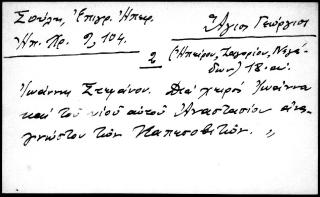 Σούλη, Ἐπιγρ. Ἠπειρ.
Ἠπ. Χρ. 9, 104.
Ἅγιος Γεώργιος
2
(Ἠπείρου, Ζαγορίου, Νεγάδων) 18 αι.
Ἰωάννης Στεφάνου. Διά χειρός Ἰωάννου
καί τοῦ υἱοῦ αὐτοῦ Ἀναστασίου ἀναγνώστου
τῶν Καπεσοβιτῶν. „